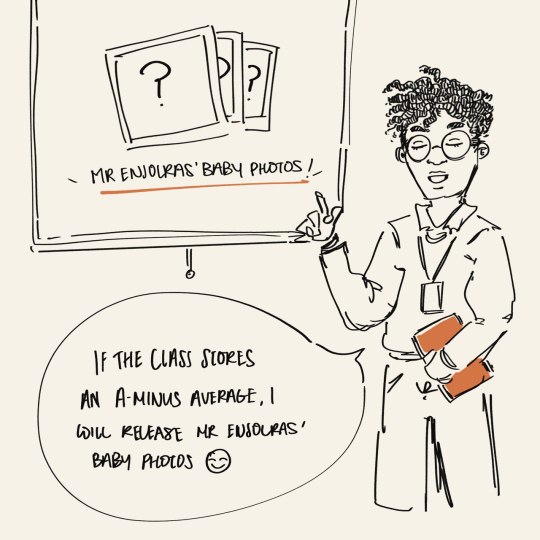 ?
?
?
MR ENJOLRAS' BABY PHOTOS!
IF THE CLASS SCORES
AN A-MINUS AVERAGE, I
WILL RELEASE MR ENJOLRAS'
BABY PHOTOS 😊